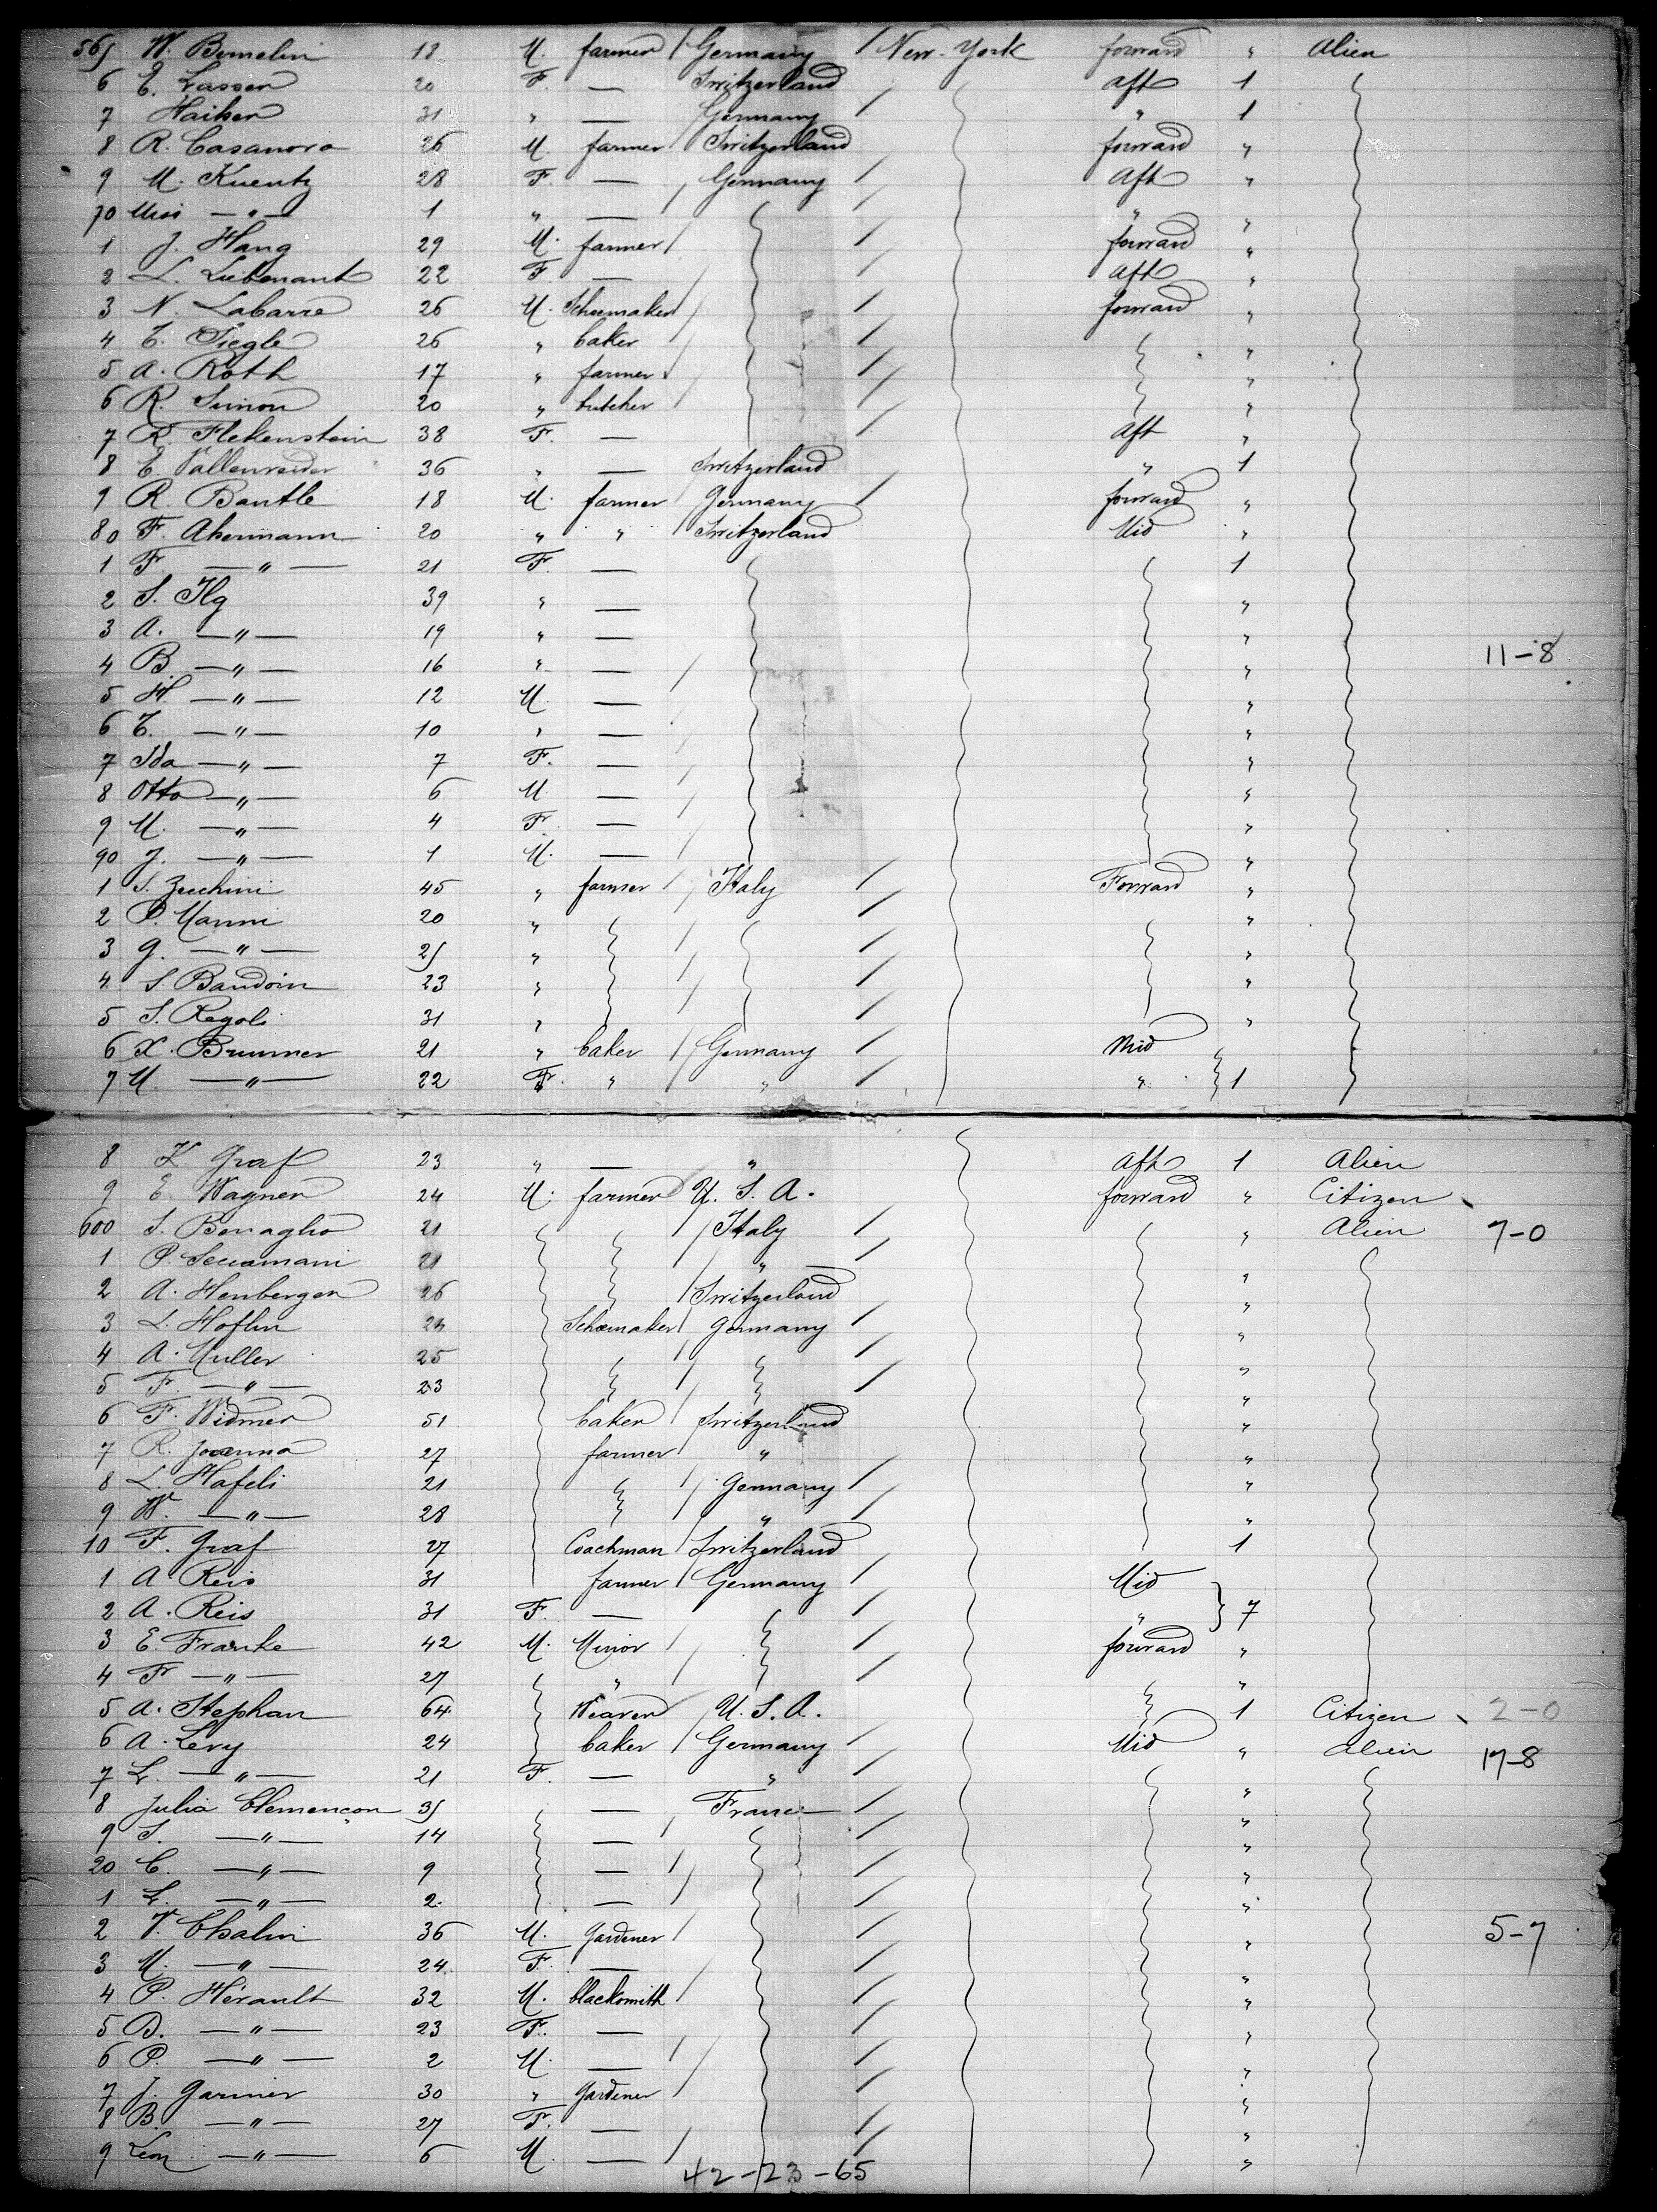 565 W. Bomelin 18 M. farmer Germany New-York forward " Alien
6 E. Lasser 20 F. — Switzerland aft 1
7 Haiker 31 " — Germany " 1
8 R. Casanova 26 M. farmer Switzerland forward "
9 M. Kuentz 28 F. — Germany aft "
70 Miss —"— 1 " — " "
1 J. Hang 29 M. farmer forward "
2 L. Liebenant 22 F. — aft "
3 N. Labarre 26 M. Schoemaker forward "
4 E. Siegle 26 " baker "
5 A. Roth 17 " farmer "
6 R. Simon 20 " butcher "
7 K. Flekenstein 38 F. — aft "
8 E. 36 " — Switzerland " 1
9 R. Bantle 18 M. farmer Germany forward "
80 F. Akermann 20 " " Switzerland Mid "
1 F. —"— 21 F. — 1
2 S. Ilg 39 " — "
3 A. —"— 19 " — "
4 B. —"— 16 " — " 11-8
5 H. —"— 12 M. — "
6 E. —"— 10 " — "
7 Ida —"— 7 F. — "
8 Otto —"— 6 M. — "
9 M. —"— 4 F. — "
90 J. —"— 1 M. — "
1 S. Zecchini 45 " farmer Italy Forward "
2 P. Manni 20 " "
3 G. —"— 25 " "
4 S. Baudoin 23 " "
5 S. Regoli 31 " "
6 X. Brunner 21 " baker Germany Mid
7 M. —"— 22 F. " " " 1
8 K. Graf 23 " — " aft 1 Alien
9 E. Wagner 24 M. farmer U. S. A. forward " Citizen
600 S. Bonaglio 21 Italy " Alien 7-0
1 P. 21 " "
2 A. Henberger 26 Switzerland "
3 L. Hoflin Schoemaker Germany "
4 A. Muller 25 "
5 F. —"— 23 "
6 F. Widmer 51 baker Switzerland "
7 R. 27 farmer " "
8 L. Hafeli 21 Germany "
9 W. —"— 28 " "
10 F. Graf 27 Coachman Switzerland 1
1 A. Reis 31 farmer Germany Mid
2 A. Reis 31 F. — " 7
3 E. Franke 42 M. Minor forward "
4 Fr —"— 27 " "
5 A. Stephan 64 Weaver U. S. A. 1 Citizen 2-0
6 A. Levy 24 baker Germany Mid " Alien 17-8
7 L. —"— 21 F. — " "
8 Julia Clemençon 35 — France "
9 S. —"— 14 — "
20 C. —"— 9 — "
1 L. —"— 2 — "
2 V. Chalin 36 M. Gardener " 5-7
3 M. —"— 24 F. — "
4 P. Hérault 32 M. blacksmith "
5 D. —"— 23 F. — "
6 P. —"— 2 M. — "
7 J. Garnier 30 " Gardener "
8 B. —"— 27 F. — "
9 Leon —"— 6 M. — "
42-23-65